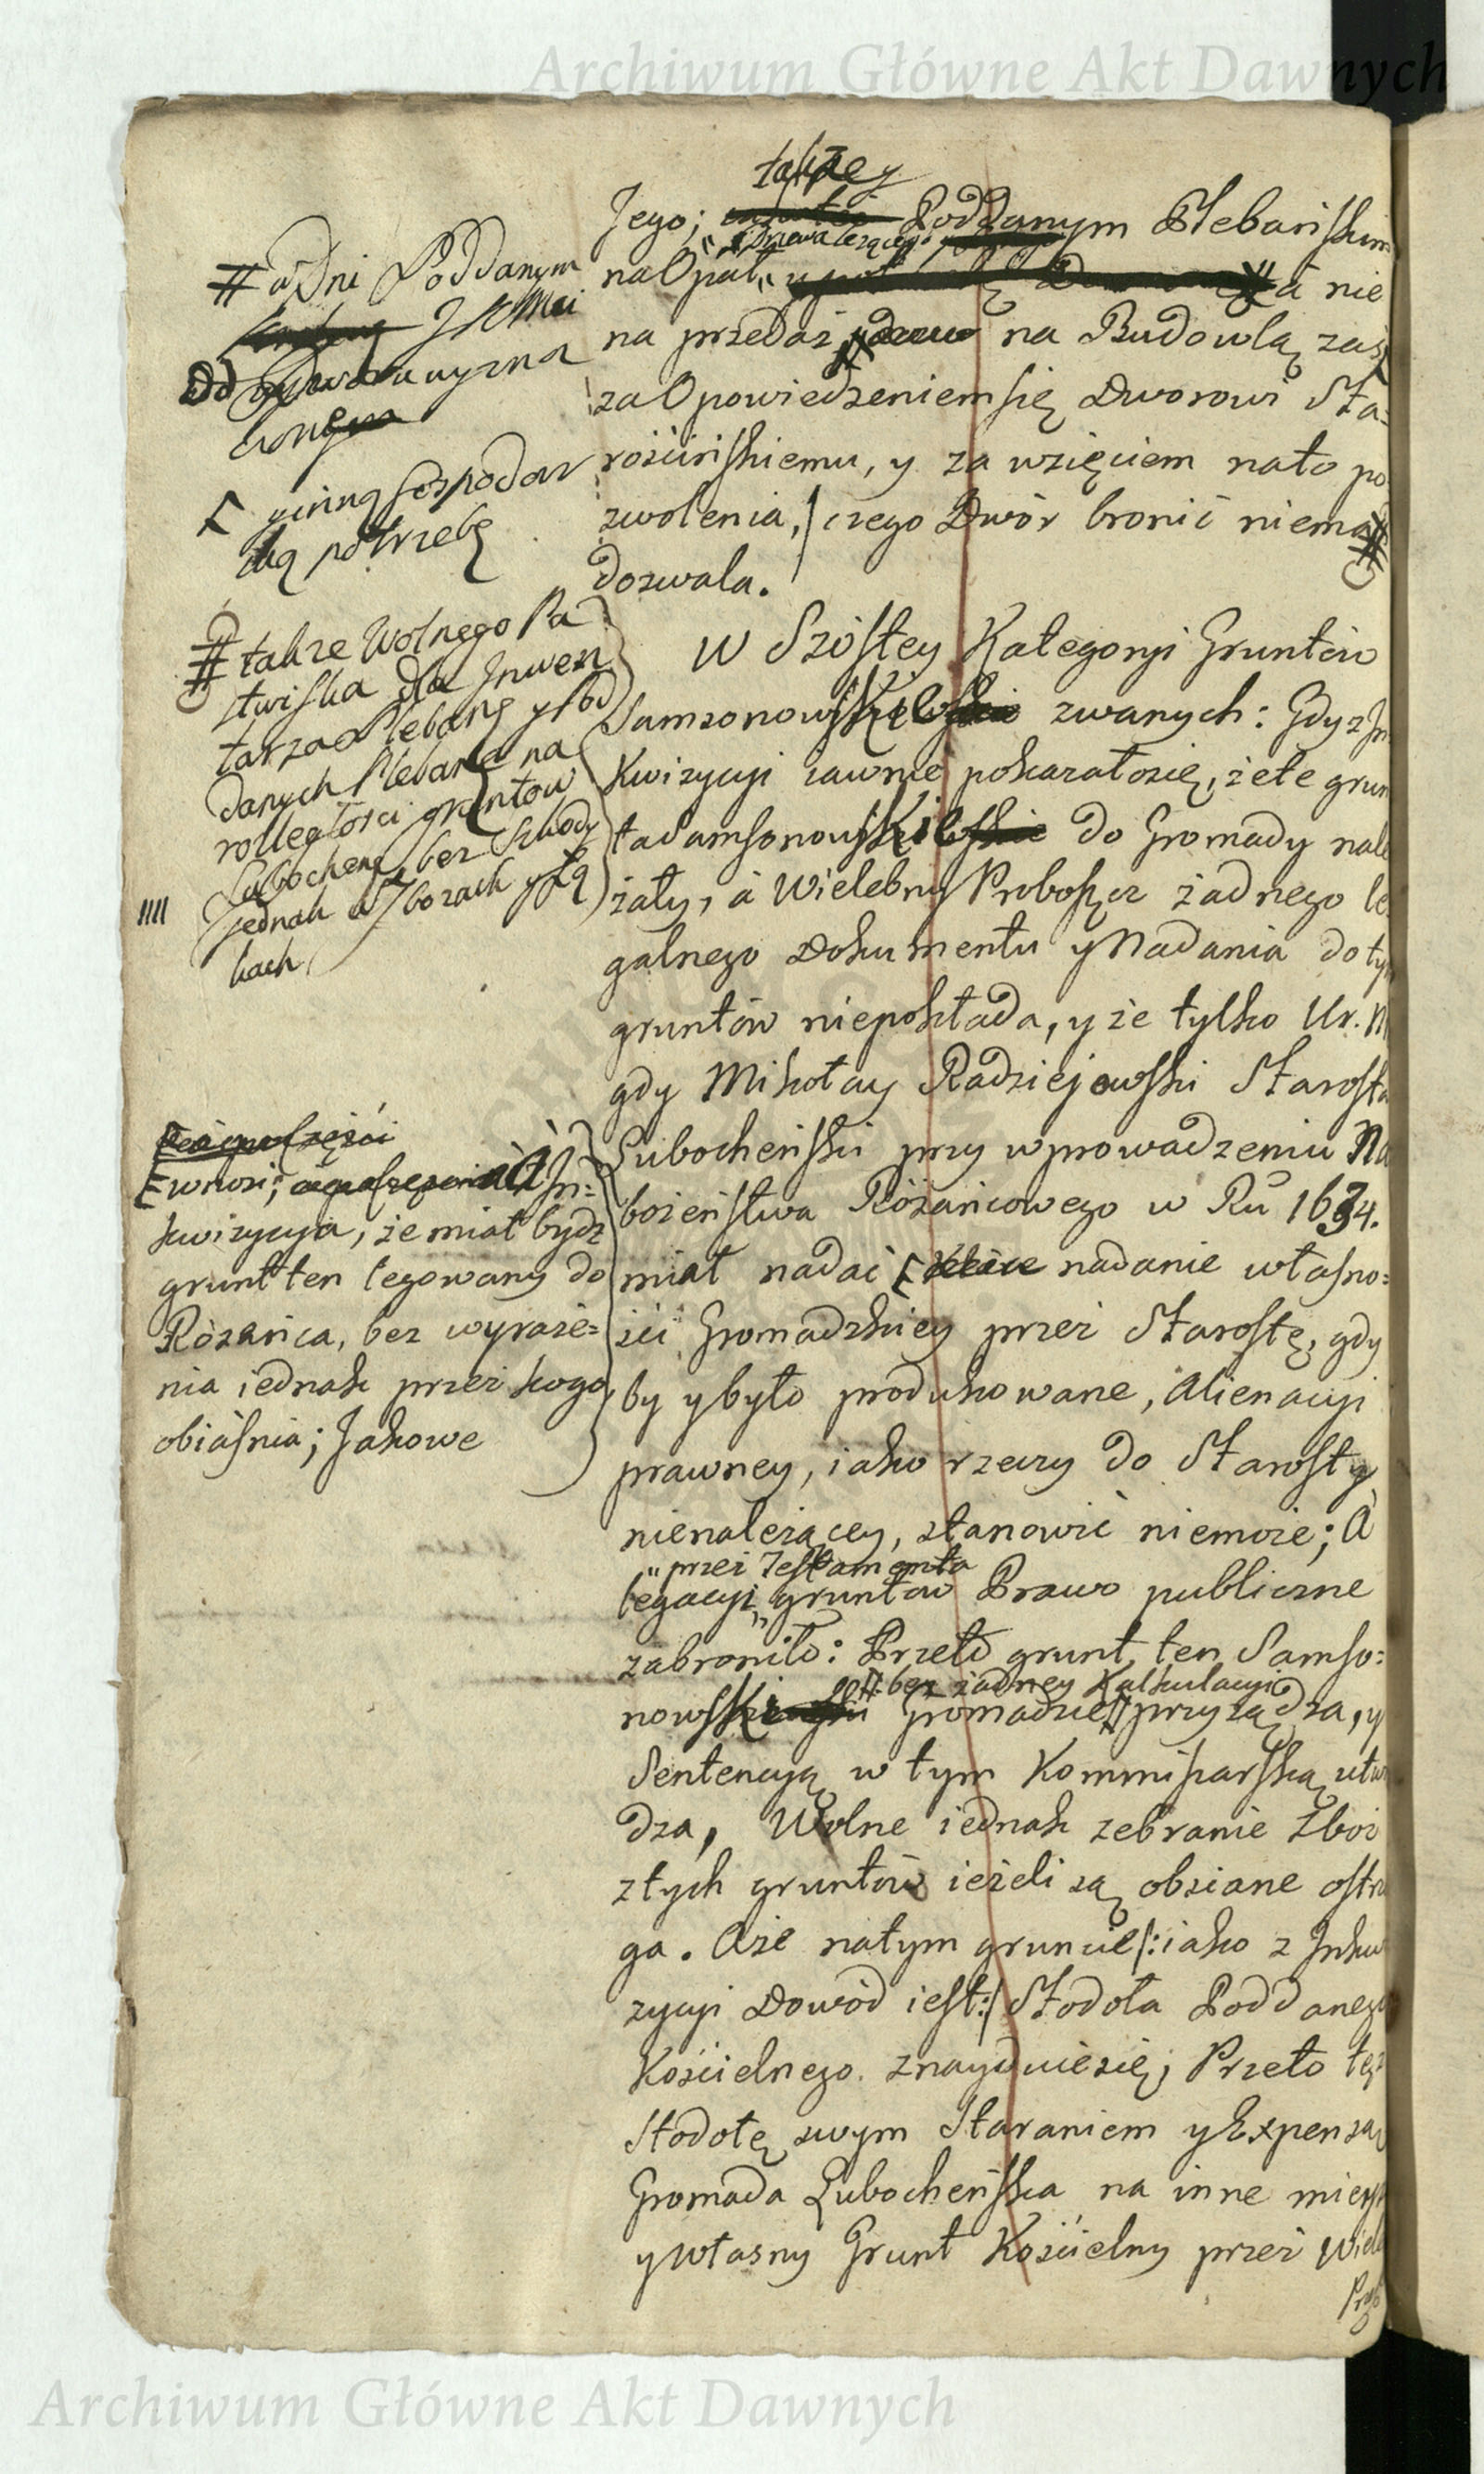 Archiwum Główne Akt Dawnych
także y
Jego; Poddanym Plebańskim
z Drzewa leżącego
na Opał a nie
na przedaż na Budowlą zaś
za Opowiedzeniem się Dworowi Sta=
rościńskiemu, y za wzięciem nato po
zwolenia, czego Dwór bronić niema #
dozwala.
# w Dni Poddanym
Od Dworu wyzna
czone
[ y inną Gospodar
ską potrzebę
# także Wolnego Pa
stwiska dla Jnwen
tarza Plebana y Pod
danych Plebana na
rozległości gruntow
Lubocheni, bez Szkody
jednak w Zborach y Łą
kach
W Szóstey Kategoryi Gruntów
Samsonowski zwanych: Gdy z Jn
kwizycyi iawnie pokazało się, że te grun
ta Samsonowski do Gromady nale
żały, á Wielebny Proboszcz żadnego le
galnego Dokumentu y Nadania do tych
gruntów niepokłada, y że tylko Ur.
gdy Mikołay Radziejowski Starosta
Lubocheński przy wprowadzeniu Na
bożeństwa Różańcowego w Rű 1634.
miał nadać [ nadanie własno=
ści Gromadzkiey przez Starostę, gdy
by y było produkowane, Alienacyi
prawney, iako rzeczy do Starosty
nienależącey, stanowić niemoże; A
przez Testamenta
legacyi gruntów Prawo publiczne
zabroniło: Przeto grunt ten Samso=
bez żadney Kalkulacyi
nowski Gromadzie # przysądza, y
Sentencyą w tym Kommissarską utwi
dza, Wolne iednak zebranie Zboż
z tych gruntów ieżeli są obsiane ostrze
ga. Aże natym gruncie /: iako z Jnkwi
zycyi Dowód iest :/ Stodoła Poddanego
Kościelnego znayduie się; Przeto tęż
Stodołę swym Staraniem y Expensą
Gromada Lubocheńska na inne mieysce
y własny Grunt Kościelny przez Wiele
Prob
[ wnosi; A Jn=
kwizycya, że miał bydz
grunt ten legowany do
Różańca, bez wyraże=
nia iednak przez kogo,
obiáśnia; Jakowe
Archiwum Główne Akt Dawnych